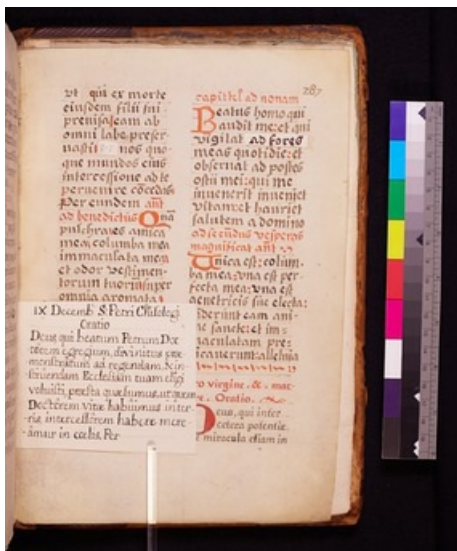 287
ut qui ex morte
eiusdem filii sui
preuisa eam ab
omni labe preser-
uasti nos quo-
que mundos eius
intercessione ad te
peruenire cōcedas
Per eundem añt
ad benedictus Quā
pulchra es amica
mea, columba mea
immaculata mea
et odor vestimen-
torum tuorum super
omnia aromata
IX Decemb S. Petri Chrisologi
Oratio
Deus qui beatum Petrum Doc
torem egregium, divinitus præ
monstratum ad regendam, & in-
struendam Ecclesiam tuam eligi
voluisti, præsta quæsumus, ut quem
Doctorem vitæ habuimus in ter-
-ris, intercessorem habere mere-
-amur in cœlis. Per
capitel ad nonam
Beatus homo qui
audit me: et qui
vigilat ad fores
meas quotidie: et
obseruat ad postes
ostii mei: qui me
inuenerit inueniet
vitam: et hauriet
salutem a domino
ad secundas vesperas
magnificat añt
Unica est: colum-
ba mea: vna est per-
fecta mea: vna est
genetricis sue electa:
viderunt eam
sancte: et im-
maculatam pre-
dicauerunt alleluia
o virgine, & mat-
Oratio.
Deus, qui inter
cetera potentiæ
miracula etiam in